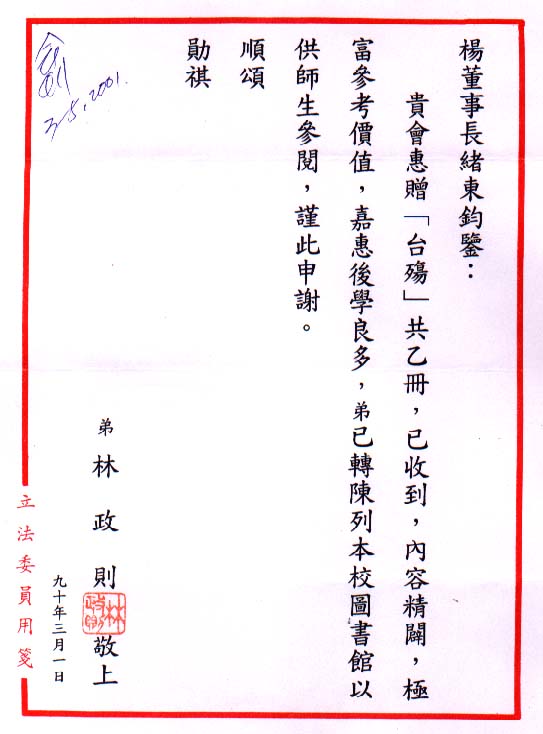 楊董事長緒東鈞鑒：
貴會惠贈「台殤」共乙冊，已收到，內容精闢，極
富參考價值，嘉惠後學良多，弟已轉陳列本校圖書館以
供師生參閱，謹此申謝。
順頌
勛祺
弟 林政則 敬上
林政則
九十年三月一日
立法委員用箋
3-5.2001.